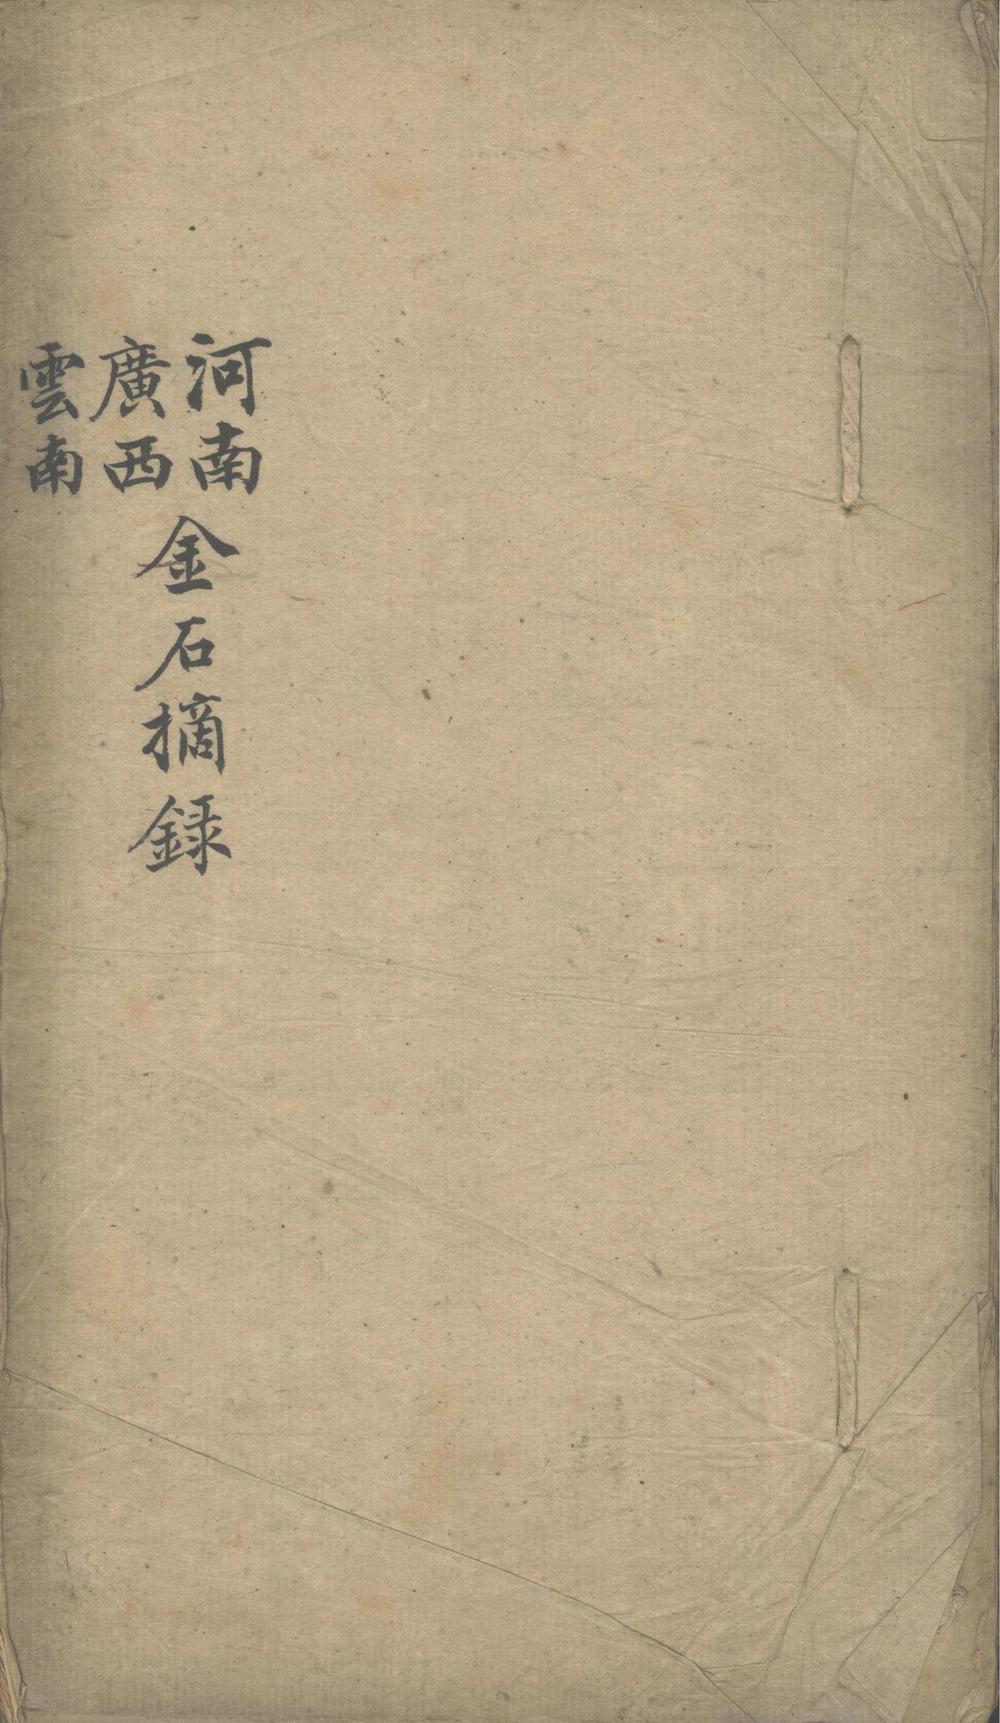 河南
廣西
雲南
金石摘録